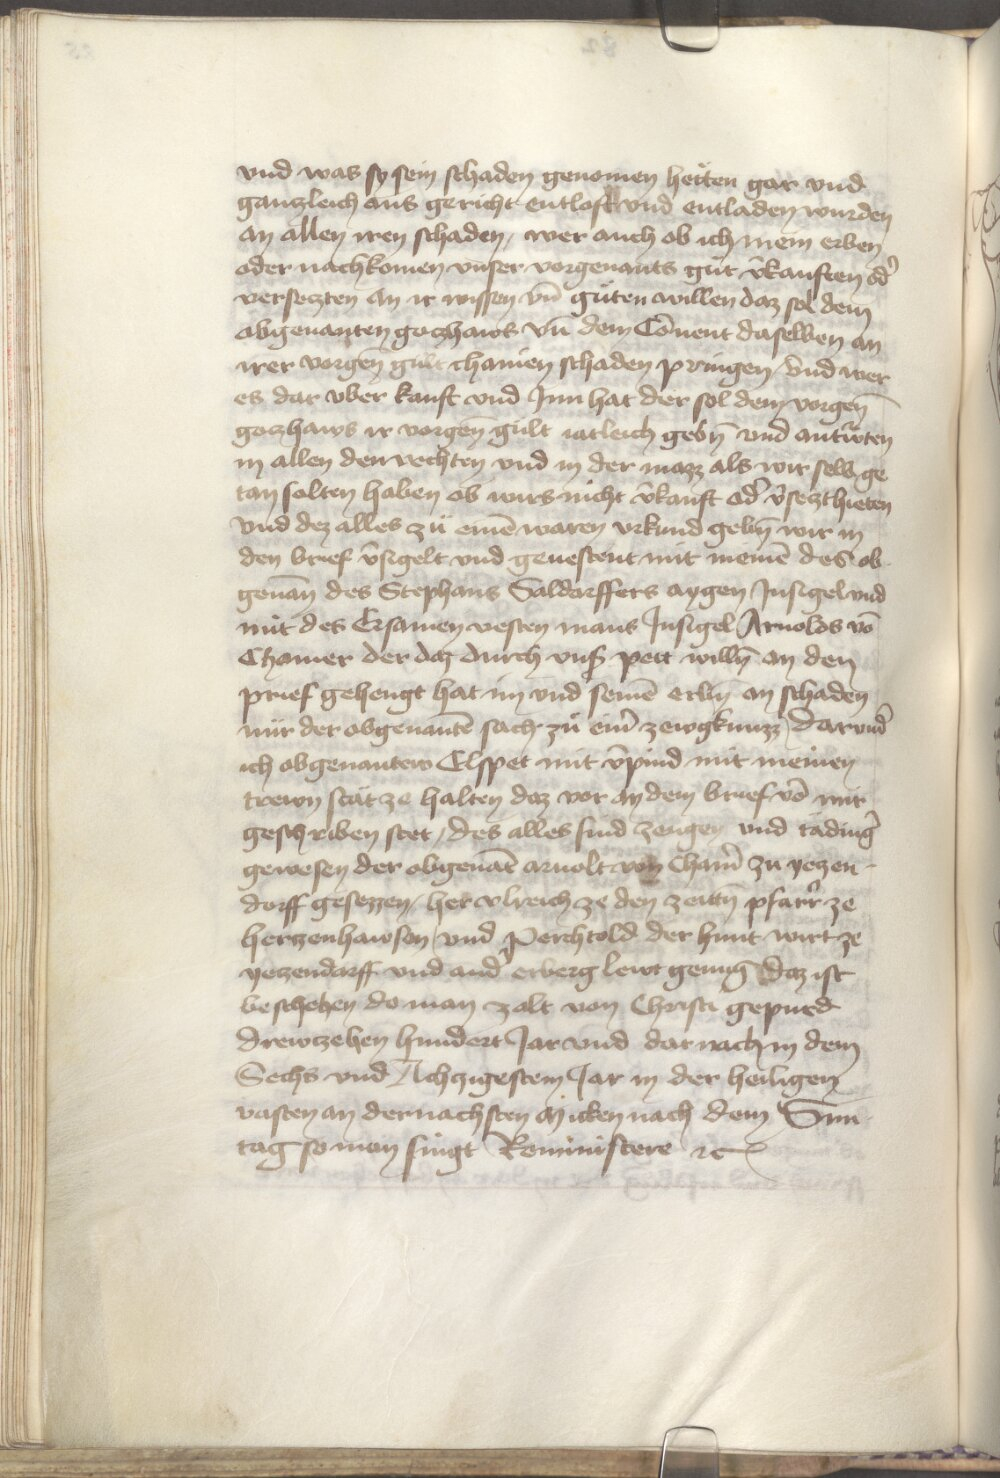 vnd was sy sein schaden genomen hetten gar vnd
ganzleich aus gericht entlost vnd entladen wurden
an allen iren schaden / wer auch ob ich mein erben
oder nachkomen vnser vorgenants gut v̄kauften od̄
versetzten an ir wissen vn̄ guten willen daz sol dem
obgenanten gotzhaws vn̄ dem Cōuent daselben an
irer vorgen̄ gult chainen schaden pringen / vnd wer
es dar vber kauft vnd Jnn hat der sol dem vorgen̄
gotzhaws ir vorgen̄ gult iatleich geb̄n vnd antw̄rten
in allen den rechten vnd in der mazz als wir selb ge
tan solten haben ob wirs nicht v̄kauft od̄ v̄setzt hieten
vnd dez alles zu eine͂ waren vrkund geb̄n wir in
den brief v̄sigelt vnd geuestent mit meine͂ des ob
genan̄ des Stephans Saldorffers aygen Jnsigel vnd
mit des Ersamen vesten mans Jnsigel Arnolds vō
Chamer der daz durch vnß pett will̄n an den
prief gehengt hat im vnd seine͂ erb̄n an schaden
nür der obgenante͂ sach zu eim̄ zewgknuzz / Darvnd̄
ich obgenantew Elspet mit v̄pind mit meinen
trewn stat ze halten daz vor an dem brief vō mir
geschriben stet / des alles sind zeugen vnd tadinḡ
gewesen der obgenāt arnolt von Cham̄ zu yetzen-
dorff gesezzen / her vlreich ze den zeitn̄ pfarr̄ ze
hertzenhawsen / vnd Perchtold der hunt wirt ze
yetzendorff vnd and̄ erberg lewt genug Daz ist
beschehen do man zalt von Christi gepurd
drewzehen hundert Jar vnd dar nach in dem
Sechs vnd Achzigestem Jar in der heiligen
vasten an der nachsten Micken nach dem Sun
tag so man singt Reminiscere etc